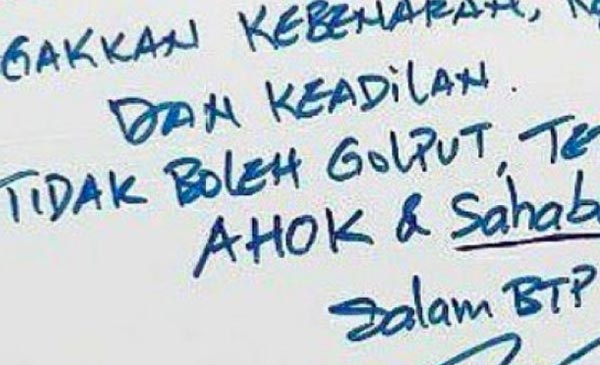 GAKKAN KEBENARAN,
DAN KEADiLAN.
TIDAK BOLEH GOLPUT, TE
AHOK & Sahab
Salam BTP